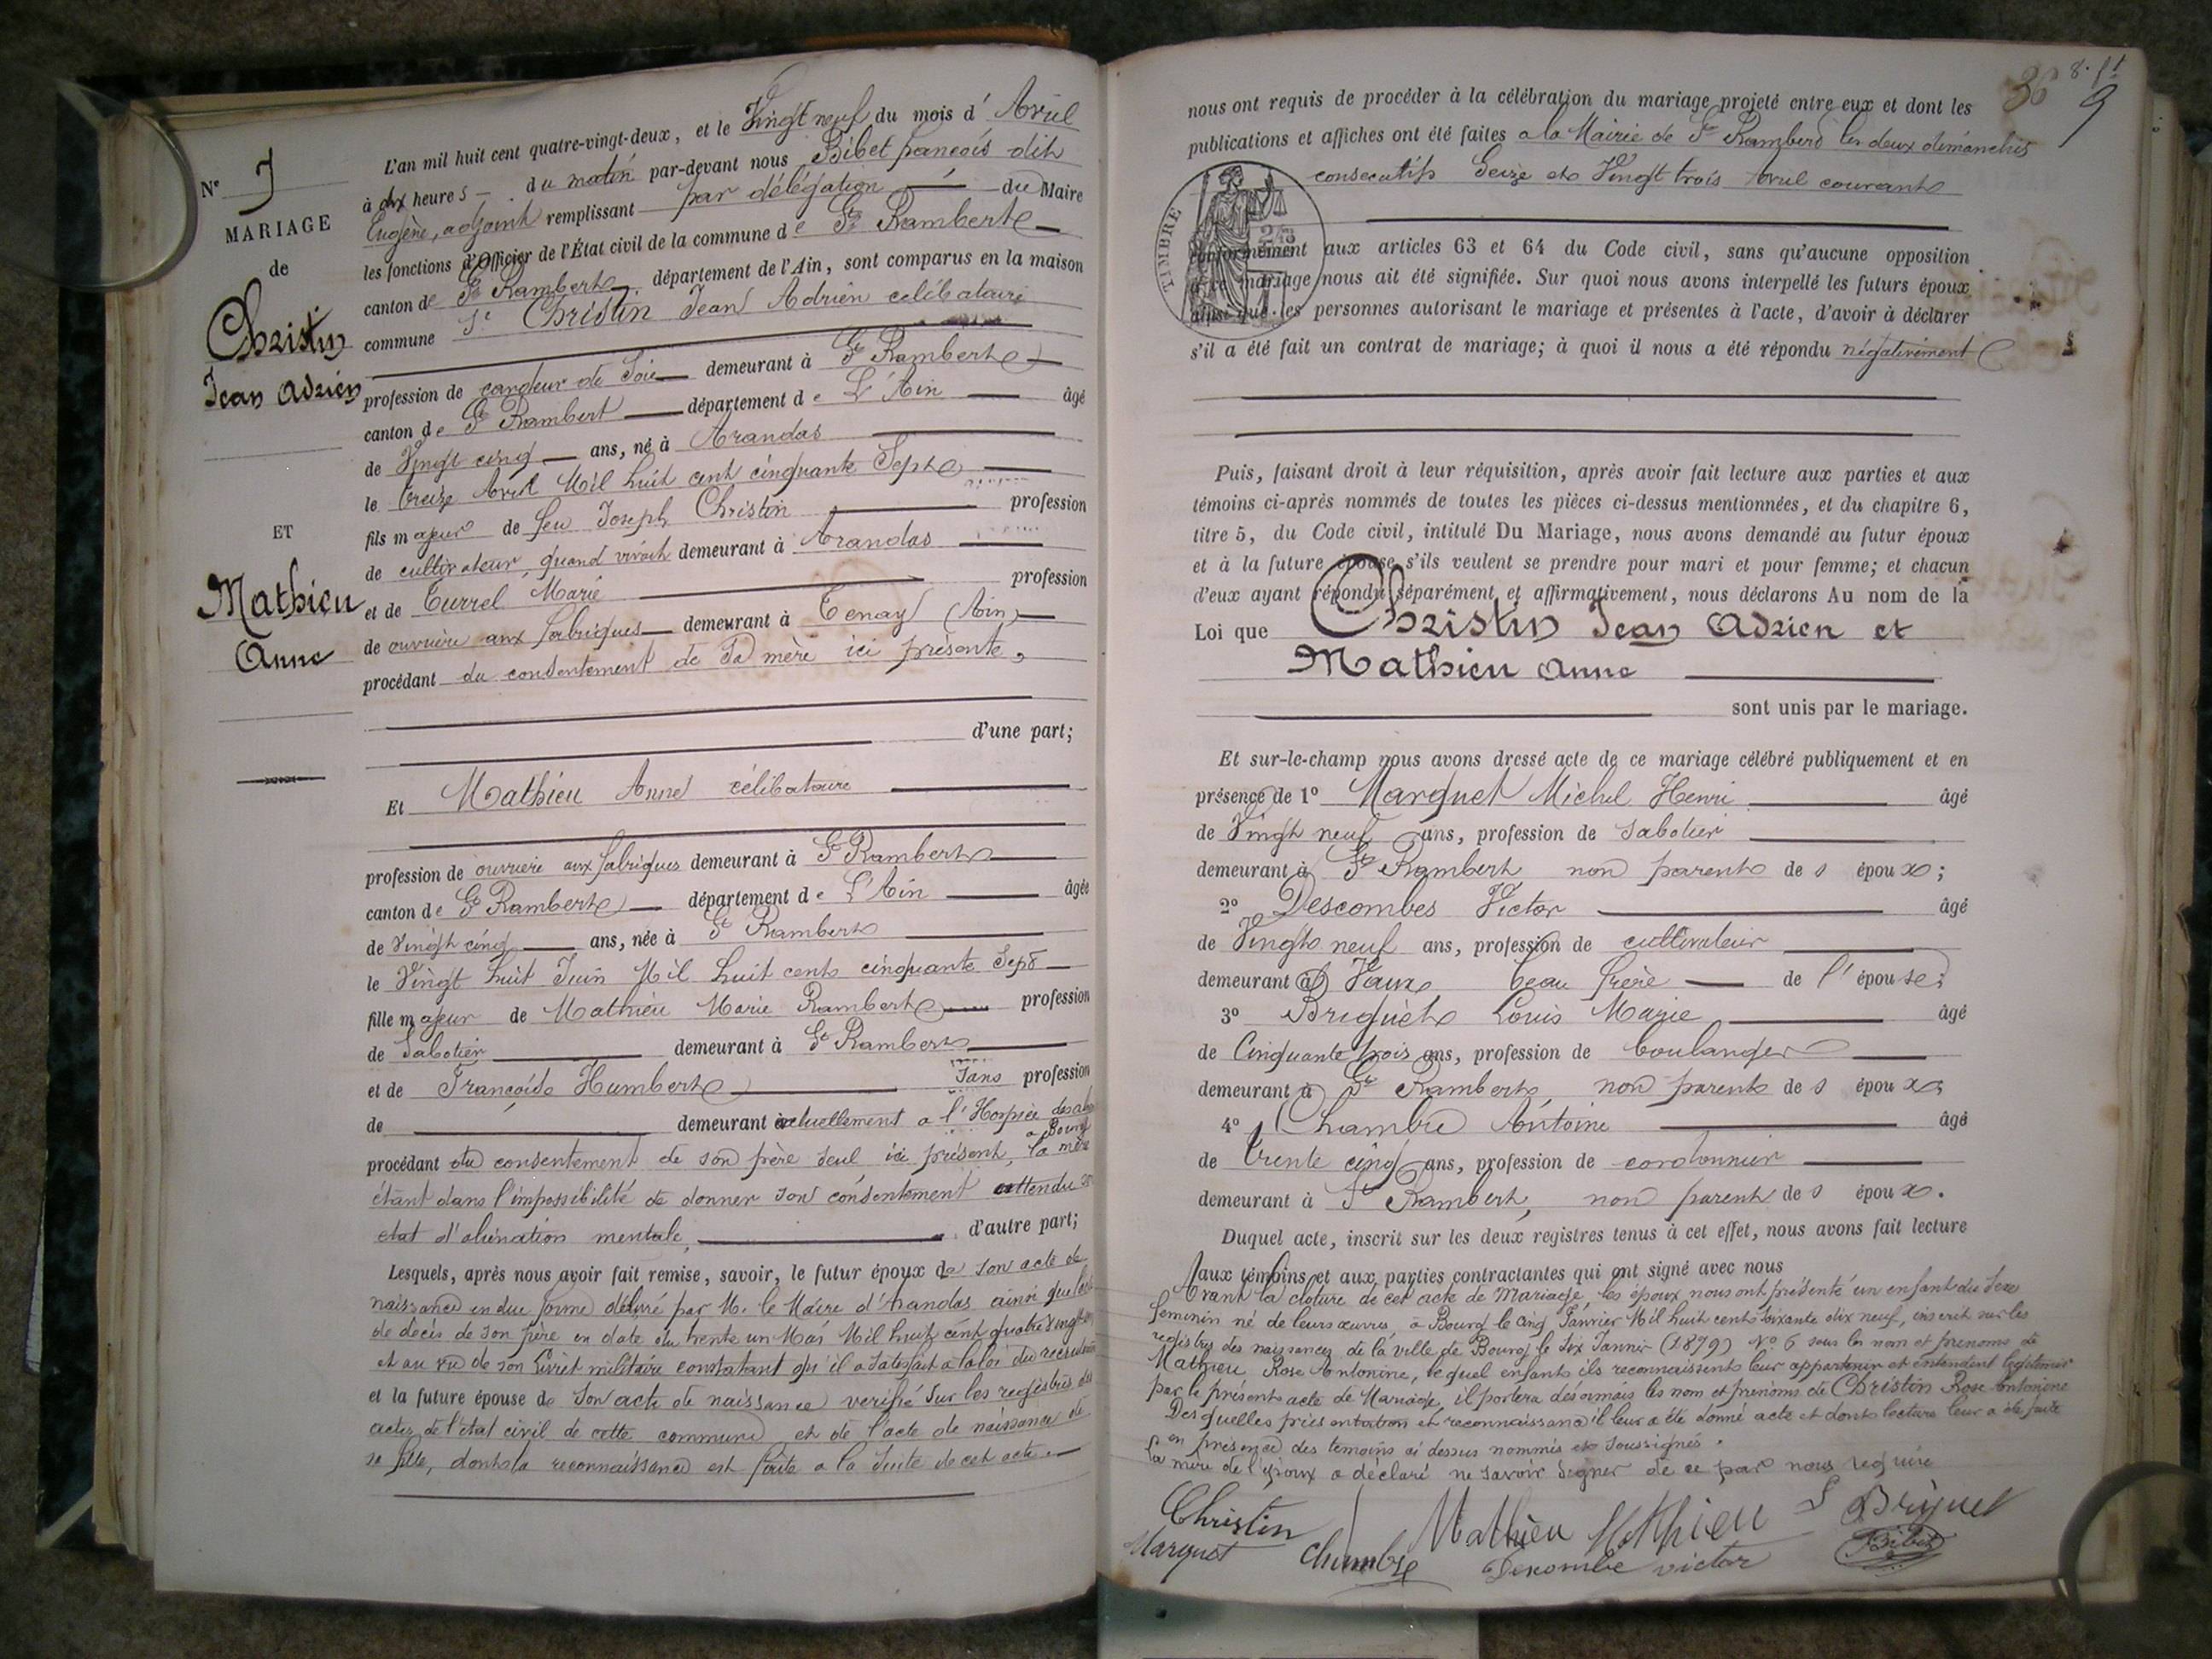 N° 7
MARIAGE
de
Christin
Jean Adrien
ET
Mathieu
Anne
L'an mil huit cent quatre-vingt-deux, et le Vingt neuf du mois d' Avril
à dix heures du matin par-devant nous Bibet françois dit
Eugène, adjoint remplissant par délégation du Maire
les fonctions d'Officier de l'État civil de la commune de St Rambert
canton de St Rambert, département de l'Ain, sont comparus en la maison
commune Sr Christin Jean Adrien célibataire
profession de cardeur de Soie demeurant à St Rambert
canton de St Rambert département de L'Ain âgé
de Vingt cinq ans, né à Arandas
le treize Avril Mil huit cent cinquante Sept
fils majeur de feu Joseph Christin profession
de cultivateur, quand vivait demeurant à Arandas
et de Turrel Marie profession
de ouvrière aux fabriques demeurant à Tenay (Ain)
procédant du consentement de sa mère ici présente,
d'une part;
Et Mathieu Anne célibataire
profession de ouvrière aux fabriques demeurant à St Rambert
canton de St Rambert département de L'Ain âgée
de Vingt cinq ans, née à St Rambert
le Vingt huit Juin Mil huit cent cinquante Sept
fille majeur de Mathieu Marie Rambert profession
de Sabotier demeurant à St Rambert
et de Françoise Humbert Sans profession
de demeurant actuellement a l'Hospice des
a Bourg
procédant du consentement de son père seul ici présent, la mère
étant dans l'impossibilité de donner son consentement attendu son
etat d'aliénation mentale, d'autre part;
Lesquels, après nous avoir fait remise, savoir, le futur époux de son acte de
naissance en due forme délivré par M. le Maire d'Arandas ainsi que
de décès de son père en date du trente un Mai Mil huit cent quatre Vingt
et au vu de son Livret militaire constatant qu'il a satisfait a la loi du recrutement
et la future épouse de son acte de naissance verifié sur les registres des
actes de l'état civil de cette commune et de l'acte de naissance de
sa fille, dont la reconnaissance est faite a la suite de cet acte.
36 8. ft
9
nous ont requis de procéder à la célébration du mariage projeté entre eux et dont les
publications et affiches ont été faites a la Mairie de St Rambert les deux dimanches
consecutifs Seize et Vingt trois Avril courant
TIMBRE
conformément aux articles 63 et 64 du Code civil, sans qu'aucune opposition
à ce mariage nous ait été signifiée. Sur quoi nous avons interpellé les futurs époux,
ainsi que les personnes autorisant le mariage et présentes à l'acte, d'avoir à déclarer
s'il a été fait un contrat de mariage; à quoi il nous a été répondu négativement
Puis, faisant droit à leur réquisition, après avoir fait lecture aux parties et aux
témoins ci-après nommés de toutes les pièces ci-dessus mentionnées, et du chapitre 6,
titre 5, du Code civil, intitulé Du Mariage, nous avons demandé au futur époux
et à la future épouse s'ils veulent se prendre pour mari et pour femme; et chacun
d'eux ayant répondu séparément et affirmativement, nous déclarons Au nom de la
Loi que Christin Jean Adrien et
Mathieu Anne
sont unis par le mariage.
Et sur-le-champ nous avons dressé acte de ce mariage célébré publiquement et en
présence de 1° Marquet Michel Henri âgé
de Vingt neuf ans, profession de sabotier
demeurant à St Rambert non parent des époux;
2° Descombes Victor âgé
de Vingt neuf ans, profession de cultivateur
demeurant à Vaux beau frère de l'épouse;
3° Briquet Louis Marie âgé
de Cinquante trois ans, profession de boulanger
demeurant à St Rambert, non parent des époux;
4° Chambre Antoine âgé
de trente cinq ans, profession de cordonnier
demeurant à St Rambert, non parent des époux.
Duquel acte, inscrit sur les deux registres tenus à cet effet, nous avons fait lecture
aux témoins et aux parties contractantes qui ont signé avec nous
Avant la cloture de cet acte de Mariage, les époux nous ont présenté un enfant du sexe
feminin né de leurs œuvres, a Bourg le cinq Janvier Mil huit cent soixante dix neuf, inscrit sur les
registres des naissances de la ville de Bourg le Six Janvier (1879) N° 6 sous les nom et prenoms de
Mathieu Rose Antonine, lequel enfant ils reconnaissent leur appartenir et entendent legitimer
par le présent acte de Mariage, il portera désormais les nom et prenoms de Christin Rose Antonine
Desquelles présentation et reconnaissance il leur a été donné acte et dont lecture leur a été faite
en présence des temoins ci dessus nommés et soussignés.
La mère de l'époux a déclaré ne savoir signer de ce par nous requise
Christin Mathieu Mathieu L Briquet
Marquet Chambre Descombe victor Bibet